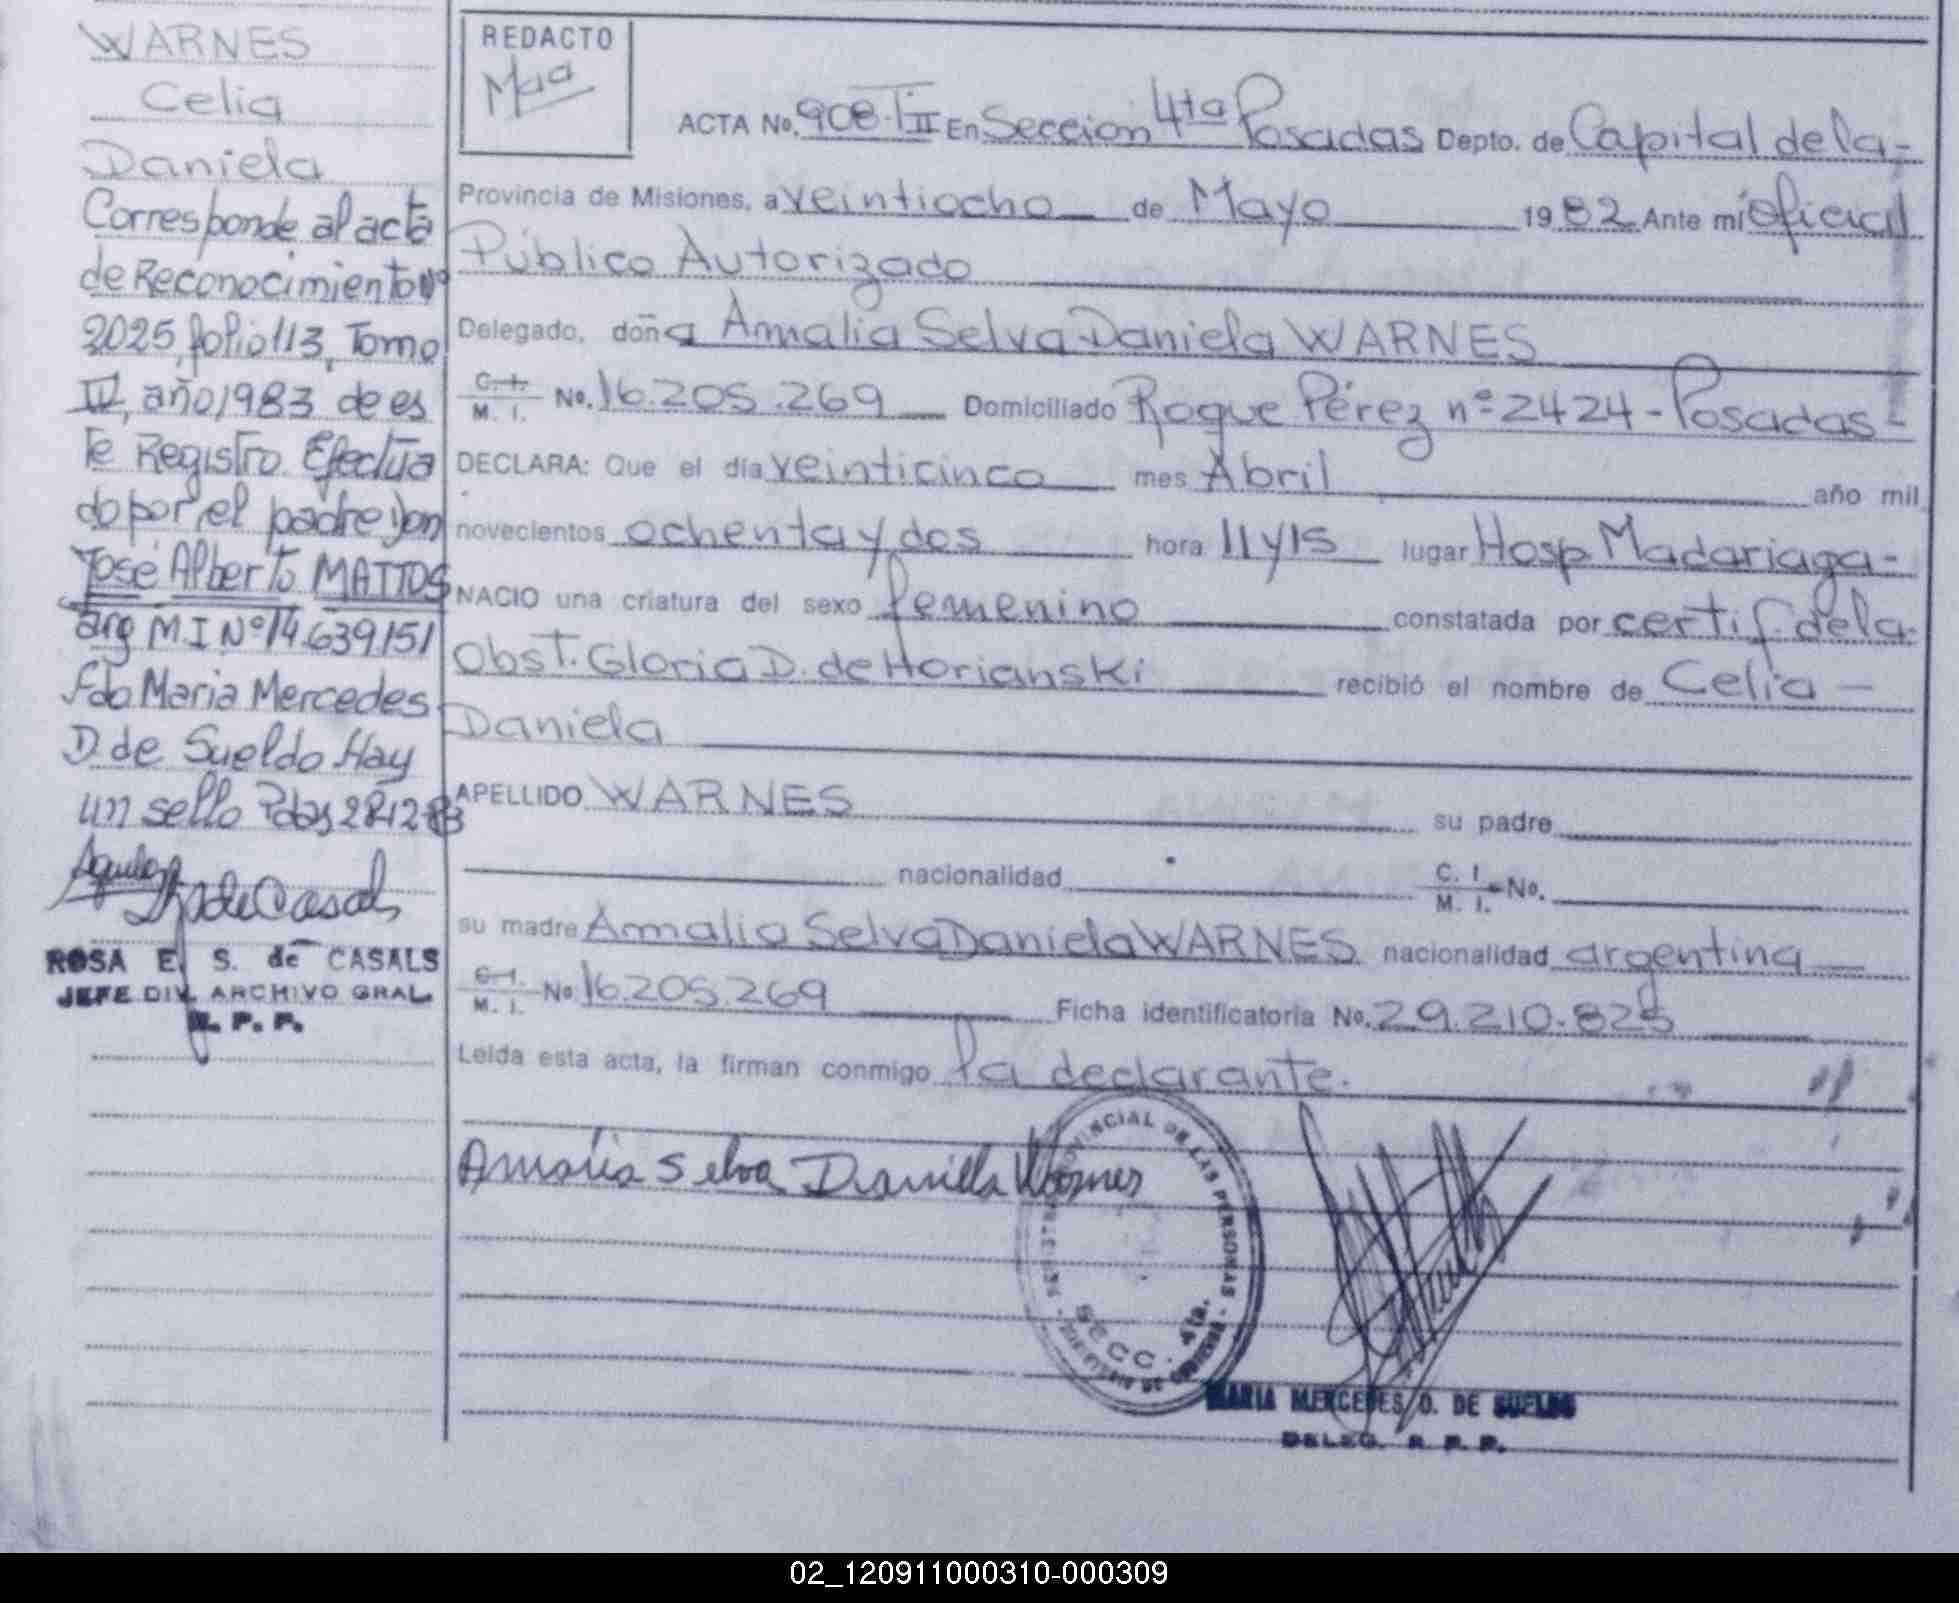 WARNES
Celia
Daniela
Corresponde al acta
de Reconocimiento Nº
2025, folio 113, Tomo
IV, año 1983 de es
te Registro Efectua
do por el padre Don
José Alberto MATTOS
arg M.I Nº 14.639.151
fdo Maria Mercedes
D. de Sueldo Hay
un sello Pdas 28-12-83
ROSA E. S. de CASALS
JEFE DIV. ARCHIVO GRAL.
R. P. P.
REDACTO
ACTA No. 908-TII En Seccion 4ta Posadas Depto. de Capital de la-
Provincia de Misiones, a veintiocho de Mayo 1982 Ante mí Oficial
Público Autorizado
Delegado, doña Amalia Selva Daniela WARNES
C. I. M. I. No. 16.205.269 Domiciliado Roque Pérez nº 2424 - Posadas -
DECLARA: Que el día veinticinco mes Abril año mil
novecientos ochenta y dos hora 11 y 15 lugar Hosp. Madariaga -
NACIO una criatura del sexo femenino constatada por certif. de la
Obst. Gloria D. de Horianski recibió el nombre de Celia -
Daniela
APELLIDO WARNES su padre
nacionalidad C. I. M. I. No.
su madre Amalia Selva Daniela WARNES nacionalidad argentina
C. I. M. I. No. 16.205.269 Ficha identificatoria No. 29.210.825
Leida esta acta, la firman conmigo la declarante.
Amalia Selva Daniella Warnes
PROVINCIAL DE LAS PERSONAS
SECC. 4ta.
MARIA MERCEDES D. DE SUELDO
DELEG. R. P. P.
02_120911000310-000309